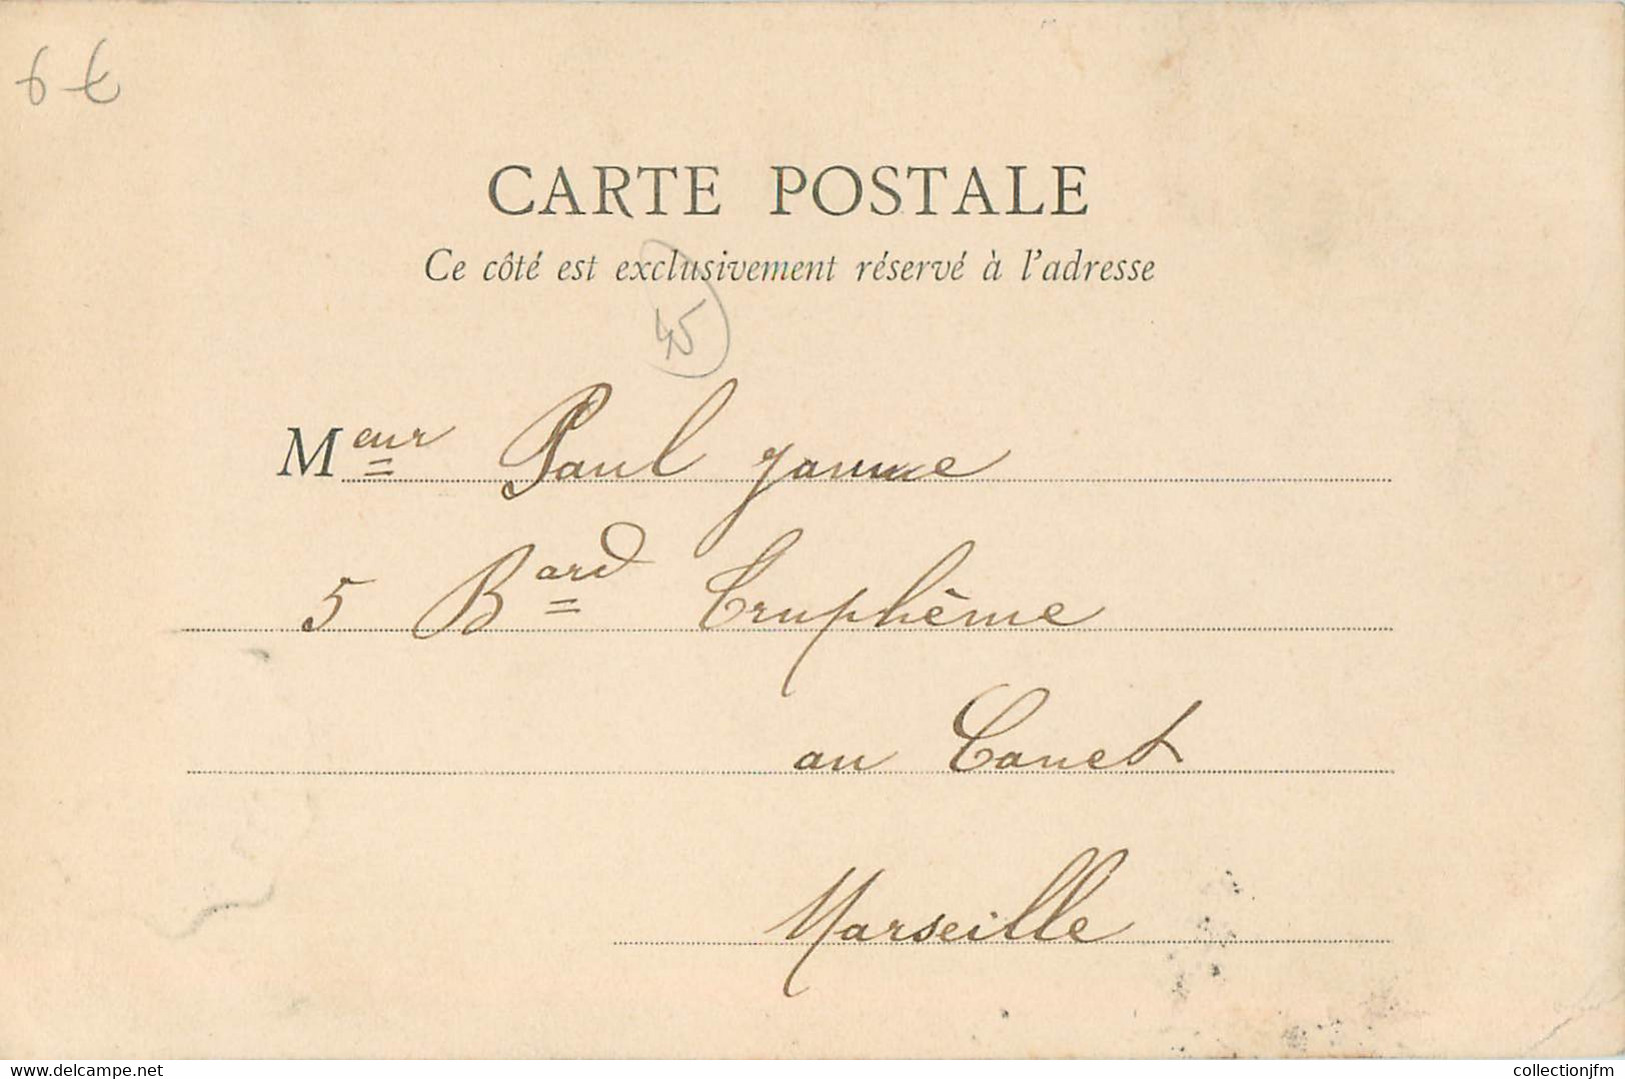 6 €
CARTE POSTALE
Ce côté est exclusivement réservé à l'adresse
45
Meur Paul
5 Bard Truphème
au Canet
Marseille
delcampe.net
collectionjfm